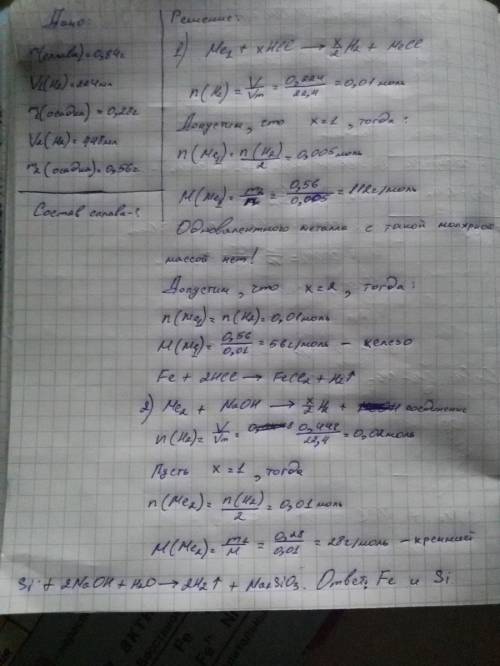 Дано:
m(сплава)=0,84г
V1(H2)=224мл
m1(осадка)=0,28г
V2(H2)=448мл
m2(осадка)=0,56г
Состав сплава-?
Решение:
1) Me1 + xHCl → x/2 H2 + MeCl
n(H2) = V/Vm = 0,224/22,4 = 0,01 моль
Допустим, что x=1, тогда:
n(Me1) = n(H2)/2 = 0,005 моль
M(Me1) = = 0,56/0,005 = 112 г/моль
Одновалентного металла с такой молярной
массой нет!
Допустим, что x=2, тогда:
n(Me1) = n(H2) = 0,01 моль
M(Me1) = 0,56/0,01 = 56 г/моль – железо
Fe + 2HCl → FeCl2 + H2↑
2) Me2 + NaOH → x/2 H2 + соединение
n(H2) = V/Vm = 0,448/22,4 = 0,02 моль
Пусть x=1, тогда
n(Me2) = n(H2)/2 = 0,01 моль
M(Me2) = = 0,28/0,01 = 28 г/моль – кремний
Si + 2NaOH + H2O → 2H2↑ + Na2SiO3. Ответ: Fe и Si